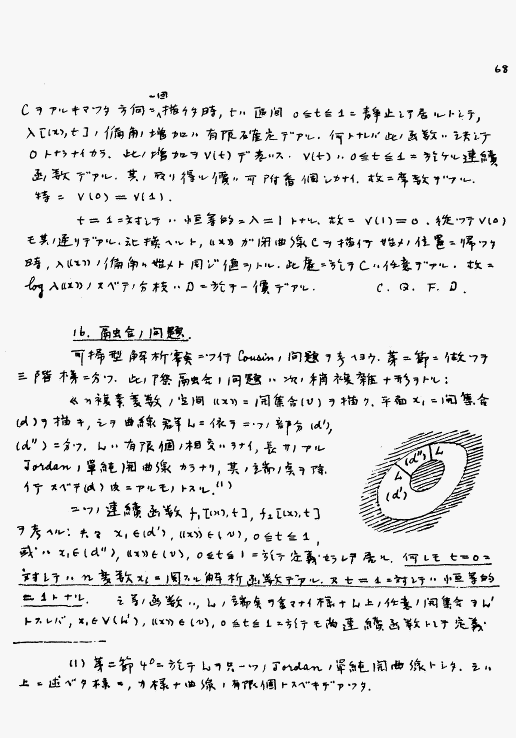 68
C ヲ アル キマツタ 方向ニ 一回 描ク時, t ハ 区間 0≦t≦1 ニ 静止シテ居ルトシテ,
λ[(x),t] ノ 偏角ノ 増加ハ 有限確定デアル. 何トナレバ 此ノ函数ハ 決シテ
0 トナラナイカラ. 此ノ増加ヲ V(t) デ表ハス. V(t) ハ 0≦t≦1 ニ於ケル連続
函数デアル. 其ノ取リ得ル値ハ 可附番個シカナイ. 故ニ常数デアル.
特ニ V(0) = V(1).
t = 1 ニ対シテハ 恒等的ニ λ = 1 トナル. 故ニ V(1) = 0. 従ツテ V(0)
モ其ノ通リデアル. 云ヒ換ヘルト, (x) ガ閉曲線 C ヲ描イテ 始メノ位置ニ帰ツタ
時, λ((x)) ノ偏角ハ始メト同ジ値ニナル. 此處ニ於テ C ハ任意デアル. 故ニ
log λ(x) ノスベテノ分枝ハ D ニ於テ一價デアル. C. Q. F. D.
16. 融合ノ問題.
可換型解析 ニツイテ Cousin ノ問題ヲ考ヘヨウ. 第二節ニ倣ツテ
三階様ニ分ツ. 此ノ際融合ノ問題ハ 次ノ稍複雑ナ形ヲトル:
n 複素変数ノ空間 ((x)) ニ閉集合 (v) ヲ描ク. 平面 x₁ ニ閉集合
(d) ヲ描キ, 之ヲ曲線群 L ニ依ツテ二ツノ部分 (d′),
(d″) ニ分ツ. L ハ 有限個ノ相交ハラナイ, 長サノアル
Jordan ノ單純閉曲線カラナリ, 其ノ端ノ点ヲ除
イテ スベテ (d) 内ニアルモノトスル.⁽¹⁾
二ツノ連続函数 f₁[(x), t], f₂[(x), t]
ヲ考ヘル: 夫々 x₁∈(d′), ((x))∈(v), 0≦t≦1,
或ハ x₁∈(d″), ((x))∈(v), 0≦t≦1 ニ於テ定義セラレテ居ル. 何レモ t=0 ニ
対シテハ n 変数 xᵢ ニ関スル解析函数デアル. 又 t = 1 ニ対シテハ恒等的
ニ 1 トナル. 之等ノ函数ハ, L ノ端点ヲ含マナイ様ナ L 上ノ任意ノ閉集合ヲ L′
トスレバ, x₁∈V(L′), ((x))∈(v), 0≦t≦1 ニ於テモ尚連続函数トシテ定義
(d″)
L
L
(d′)
(1) 第二節 4° ニ於テ L ヲ只一ツノ Jordan ノ單純閉曲線トシタ. 之ハ
上ニ述ベタ様ニ, カ様ナ曲線ノ有限個トスベキデアツタ.